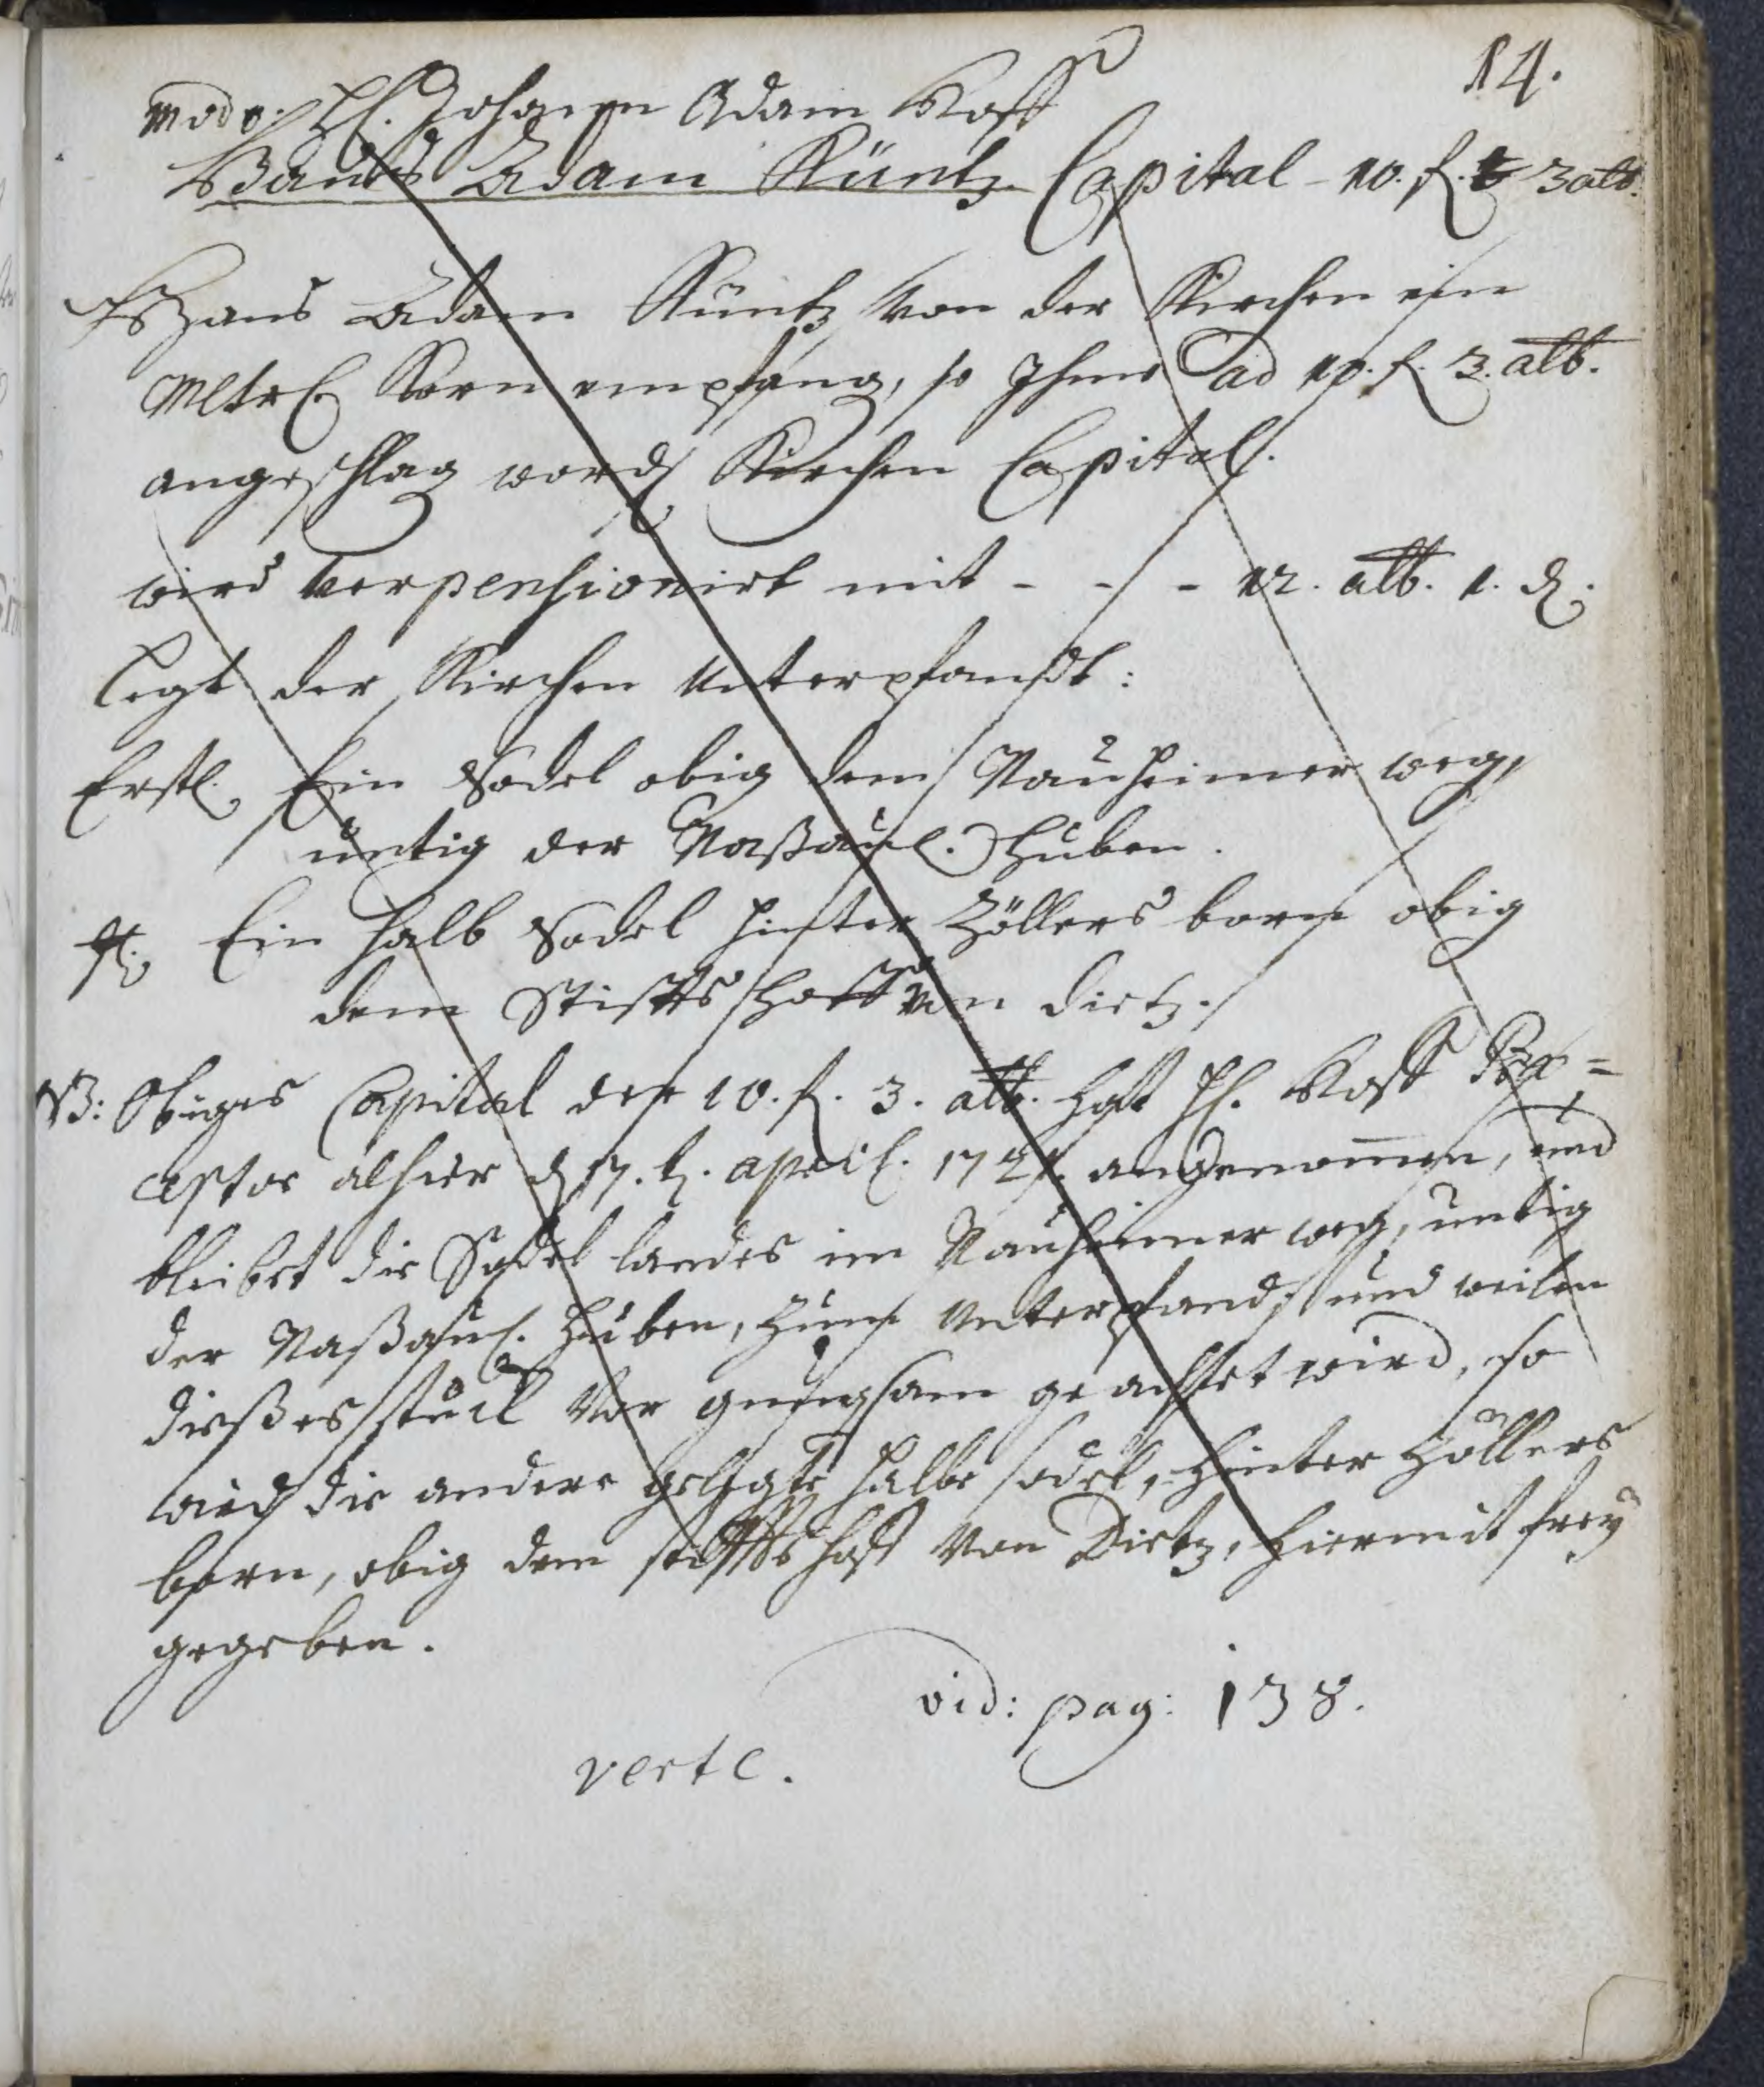 14.
modo: H. Johann Adam Kost
Hans Adam Küntz Capital - 10. f. 3 alb.
Hans Adam Küntz von der Kirchen ein
Mltr. Korn empfang, so Ihme ad 10. f. 3. alb.
angeschlag word Kirchen Capital.
wird verpensionirt mit - - - 12. alb. 1. d.
Legt der Kirchen Unterpfandt:
Erstl. Ein Sodel obig dem Nauheimer weg,
untig der Naßauel. Huben.
It. Ein halb Sodel hinter Zöllers born obig
dem Stiffts Hoff von Dietz.
NB: Obiges Capital der 10. f. 3. alb. hat H. Kost Præ=
ceptor alhier d 17. t. april. 1727. angenom̄en, und
bleibet die Sodel landes im Nauheimer weg, untig
der Naßaul. Huben, zum Unterpfand, und weilen
dießes stück vor gnugsam geachtet wird, so
wird die andere gelegte halbe sodel, hinter Zöllers
born, obig dem stiffts hoff von Dietz, hiermit frey
gegeben.
vid: pag: 138.
verte.